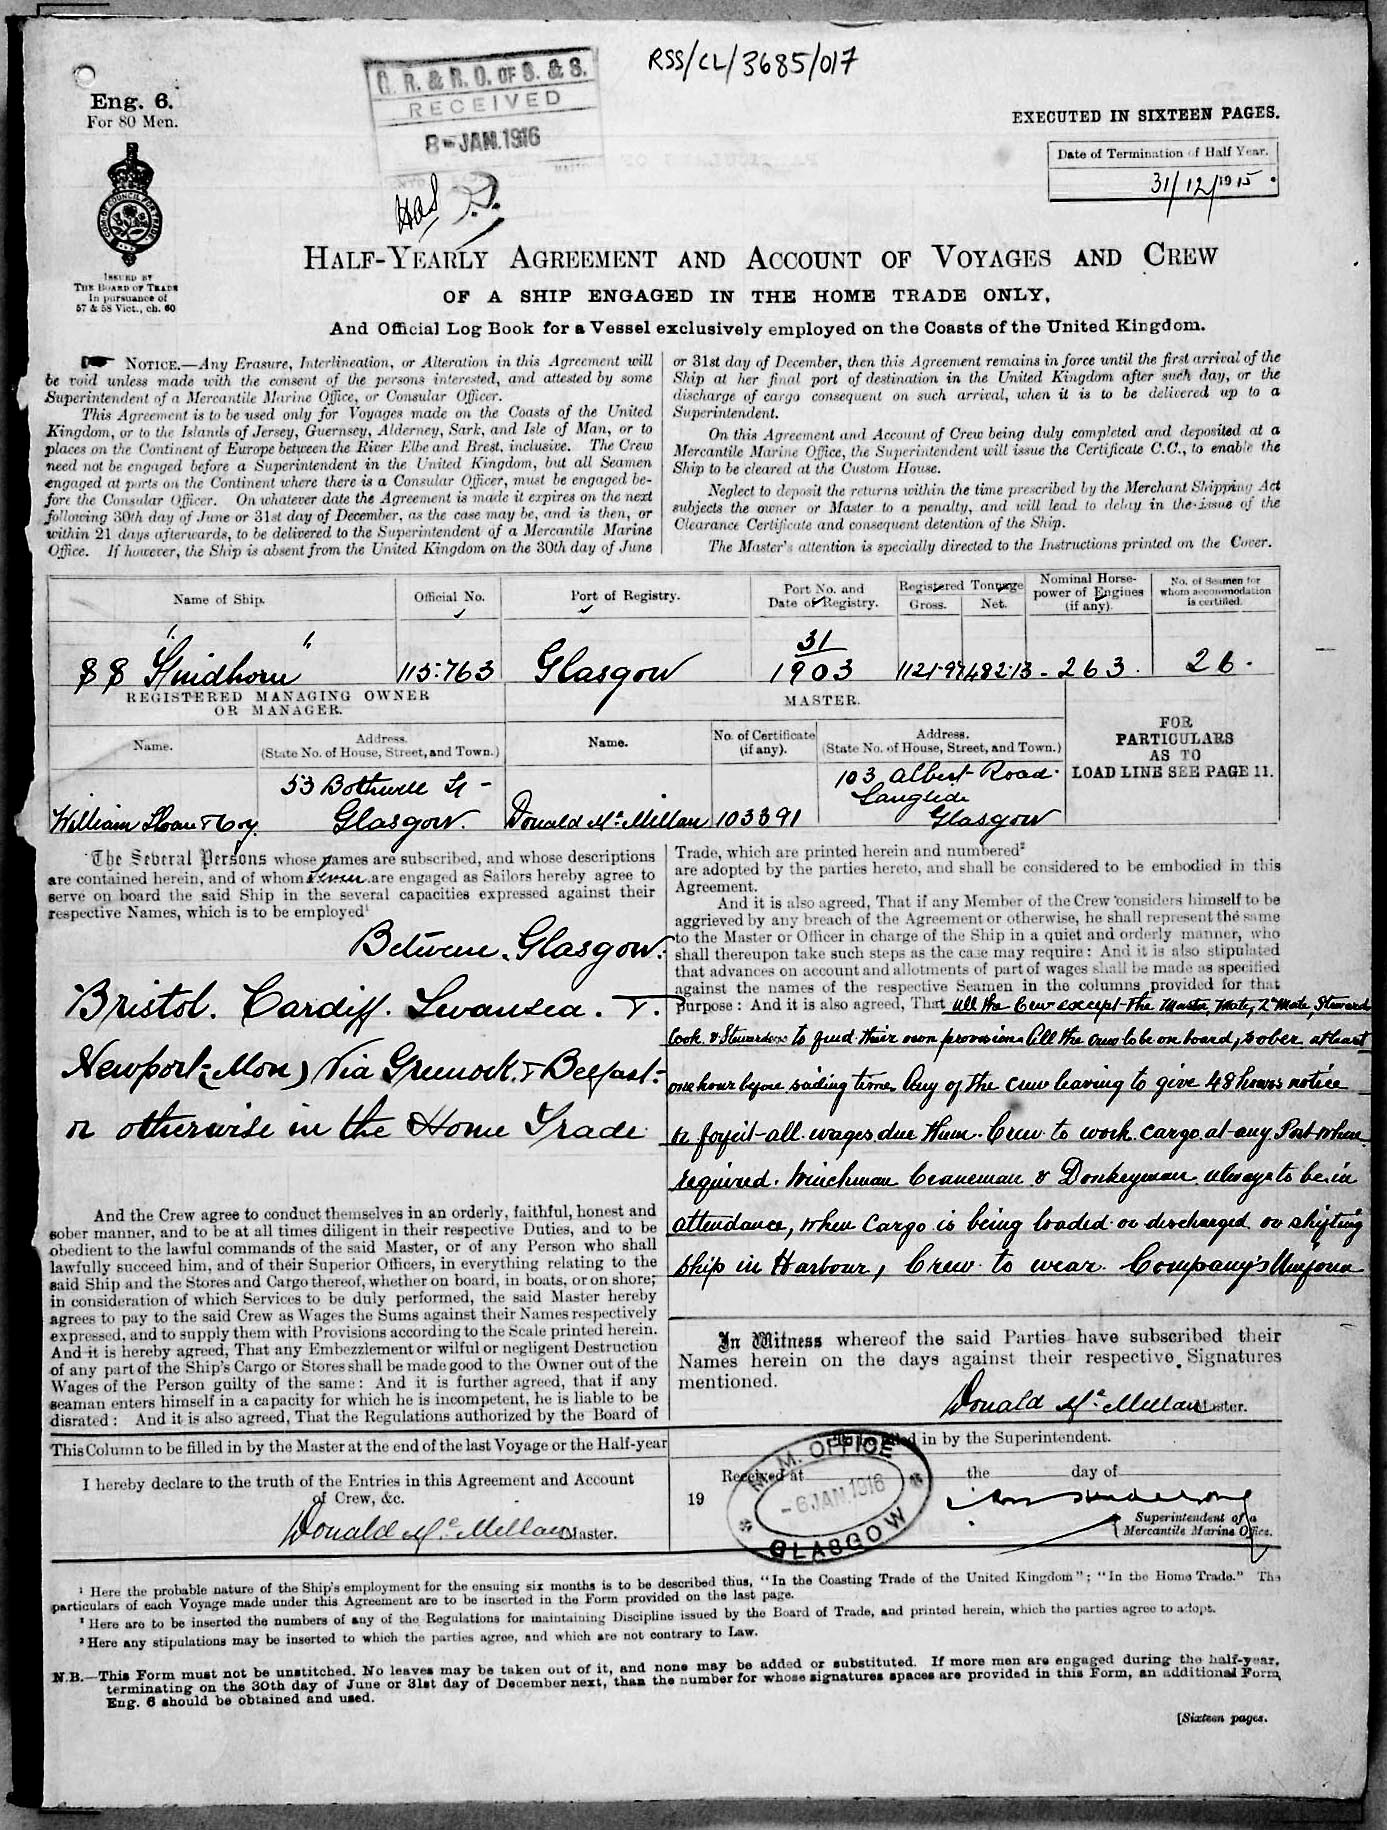 RSS/CL/3685/017
G. R. & R. O. OF S. & S.
RECEIVED
8-JAN.1916
Eng. 6.
For 80 Men.
ISSUED BY
THE BOARD OF TRADE
In pursuance of
57 & 58 Vict., ch. 60
EXECUTED IN SIXTEEN PAGES.
Date of Termination of Half Year.
31/12/1915.
HALF-YEARLY AGREEMENT AND ACCOUNT OF VOYAGES AND CREW
OF A SHIP ENGAGED IN THE HOME TRADE ONLY,
And Official Log Book for a Vessel exclusively employed on the Coasts of the United Kingdom.
NOTICE.—Any Erasure, Interlineation, or Alteration in this Agreement will
be void unless made with the consent of the persons interested, and attested by some
Superintendent of a Mercantile Marine Office, or Consular Officer.
This Agreement is to be used only for Voyages made on the Coasts of the United
Kingdom, or to the Islands of Jersey, Guernsey, Alderney, Sark, and Isle of Man, or to
places on the Continent of Europe between the River Elbe and Brest, inclusive. The Crew
need not be engaged before a Superintendent in the United Kingdom, but all Seamen
engaged at ports on the Continent where there is a Consular Officer, must be engaged be-
fore the Consular Officer. On whatever date the Agreement is made it expires on the next
following 30th day of June or 31st day of December, as the case may be, and is then, or
within 21 days afterwards, to be delivered to the Superintendent of a Mercantile Marine
Office. If however, the Ship is absent from the United Kingdom on the 30th day of June
or 31st day of December, then this Agreement remains in force until the first arrival of the
Ship at her final port of destination in the United Kingdom after such day, or the
discharge of cargo consequent on such arrival, when it is to be delivered up to a
Superintendent.
On this Agreement and Account of Crew being duly completed and deposited at a
Mercantile Marine Office, the Superintendent will issue the Certificate C.C., to enable the
Ship to be cleared at the Custom House.
Neglect to deposit the returns within the time prescribed by the Merchant Shipping Act
subjects the owner or Master to a penalty, and will lead to delay in the issue of the
Clearance Certificate and consequent detention of the Ship.
The Master's attention is specially directed to the Instructions printed on the Cover.
Name of Ship. Official No. Port of Registry. Port No. and Date of Registry. Registered Tonnage Gross. Net. Nominal Horse-power of Engines (if any). No. of Seamen for whom accommodation is certified.
SS "Findhorn" 115.763 Glasgow 31 1903 1121.97 482.13 263. 26.
REGISTERED MANAGING OWNER
OR MANAGER.
MASTER.
Name. Address. (State No. of House, Street, and Town.) Name. No. of Certificate (if any). Address. (State No. of House, Street, and Town.)
FOR
PARTICULARS
AS TO
LOAD LINE SEE PAGE 11.
53 Bothwell St
103 Albert Road
Langside
William Sloan & Coy. Glasgow. Donald McMillan 103391 Glasgow
The Several Persons whose names are subscribed, and whose descriptions
are contained herein, and of whom seven are engaged as Sailors hereby agree to
serve on board the said Ship in the several capacities expressed against their
respective Names, which is to be employed¹
Between Glasgow.
Bristol. Cardiff. Swansea. &.
Newport (Mon) Via Greenock & Belfast
or otherwise in the Home Trade
And the Crew agree to conduct themselves in an orderly, faithful, honest and
sober manner, and to be at all times diligent in their respective Duties, and to be
obedient to the lawful commands of the said Master, or of any Person who shall
lawfully succeed him, and of their Superior Officers, in everything relating to the
said Ship and the Stores and Cargo thereof, whether on board, in boats, or on shore;
in consideration of which Services to be duly performed, the said Master hereby
agrees to pay to the said Crew as Wages the Sums against their Names respectively
expressed, and to supply them with Provisions according to the Scale printed herein.
And it is hereby agreed, That any Embezzlement or wilful or negligent Destruction
of any part of the Ship's Cargo or Stores shall be made good to the Owner out of the
Wages of the Person guilty of the same: And it is further agreed, that if any
seaman enters himself in a capacity for which he is incompetent, he is liable to be
disrated: And it is also agreed, That the Regulations authorized by the Board of
Trade, which are printed herein and numbered²
are adopted by the parties hereto, and shall be considered to be embodied in this
Agreement.
And it is also agreed, That if any Member of the Crew considers himself to be
aggrieved by any breach of the Agreement or otherwise, he shall represent the same
to the Master or Officer in charge of the Ship in a quiet and orderly manner, who
shall thereupon take such steps as the case may require: And it is also stipulated
that advances on account and allotments of part of wages shall be made as specified
against the names of the respective Seamen in the columns provided for that
purpose: And it is also agreed, That all the Crew except the Master, Mate, 2nd Mate, Steward
Cook & Stewardess to find their own provisions All the crew to be on board, sober at least
one hour before sailing time. Any of the crew leaving to give 48 hours notice
or forfeit all wages due them. Crew to work cargo at any Port where
required. Winchman Craneman & Donkeyman always to be in
attendance, when Cargo is being loaded or discharged or shifting
ship in Harbour, Crew to wear Company's Uniform
In Witness whereof the said Parties have subscribed their
Names herein on the days against their respective Signatures
mentioned.
Donald McMillan Master.
This Column to be filled in by the Master at the end of the last Voyage or the Half-year
I hereby declare to the truth of the Entries in this Agreement and Account
of Crew, &c.
Donald McMillan Master.
To be filled in by the Superintendent.
Received at the day of
19
M. M. OFFICE
-6 JAN.1916
GLASGOW
Superintendent of a
Mercantile Marine Office.
¹ Here the probable nature of the Ship's employment for the ensuing six months is to be described thus, "In the Coasting Trade of the United Kingdom"; "In the Home Trade." The
particulars of each Voyage made under this Agreement are to be inserted in the Form provided on the last page.
² Here are to be inserted the numbers of any of the Regulations for maintaining Discipline issued by the Board of Trade, and printed herein, which the parties agree to adopt.
³ Here any stipulations may be inserted to which the parties agree, and which are not contrary to Law.
N.B.—This Form must not be unstitched. No leaves may be taken out of it, and none may be added or substituted. If more men are engaged during the half-year,
terminating on the 30th day of June or 31st day of December next, than the number for whose signatures spaces are provided in this Form, an additional Form,
Eng. 6 should be obtained and used.
[Sixteen pages.